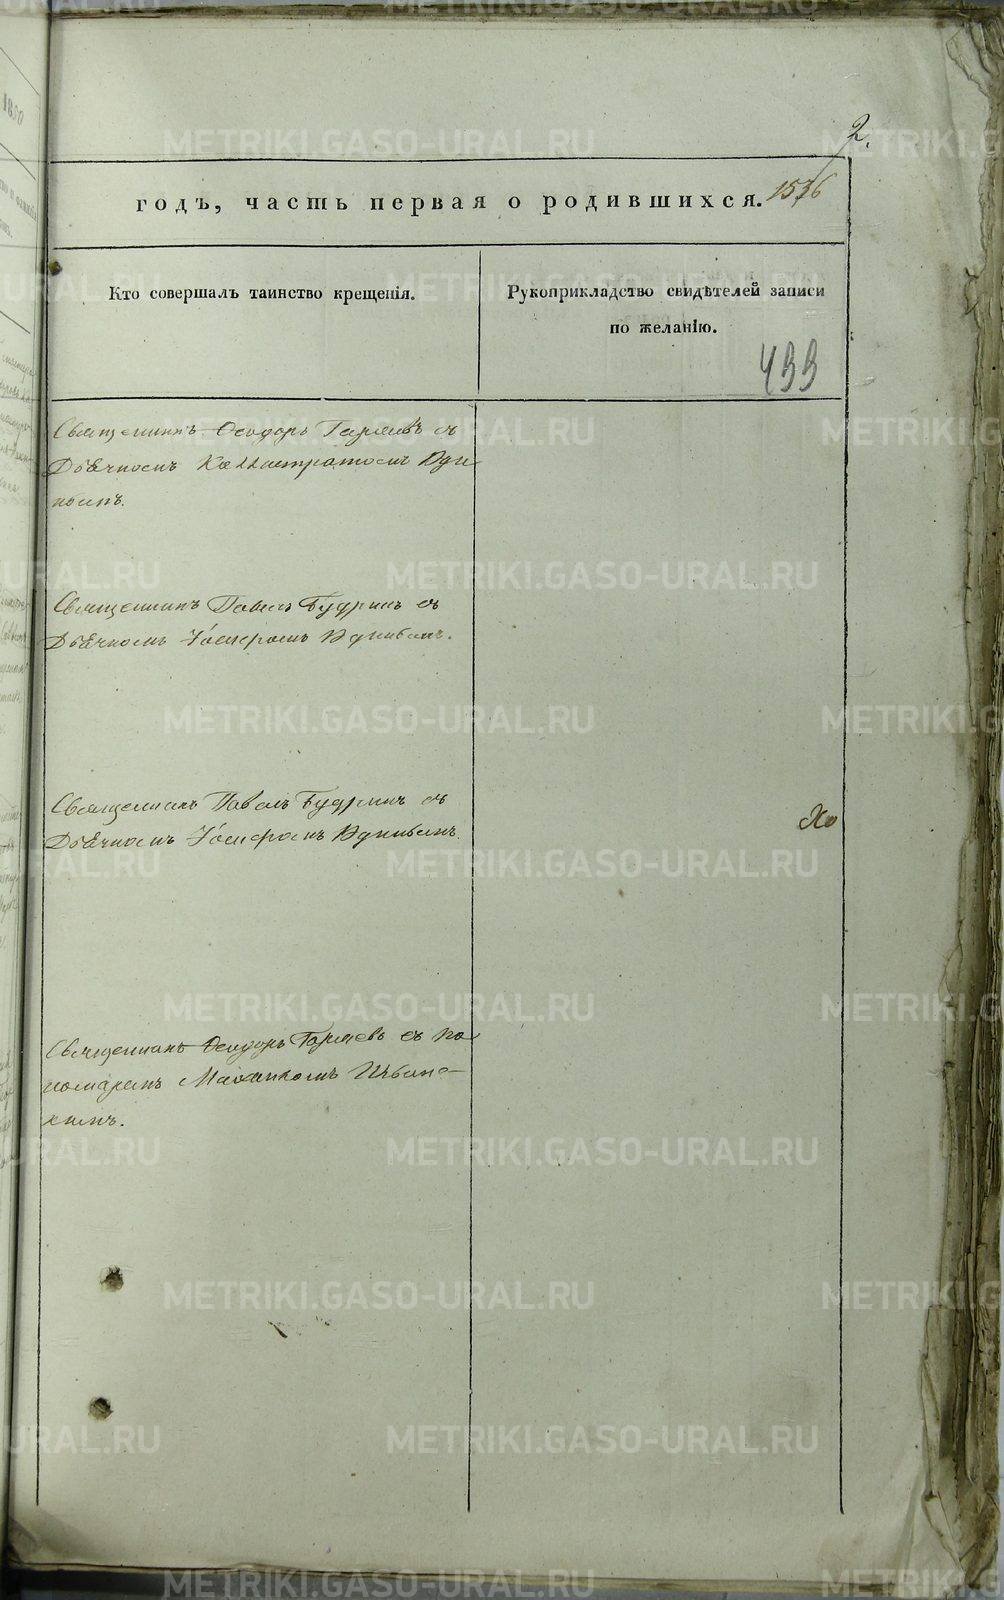 2.
годъ, часть первая о родившихся. 1536
Кто совершалъ таинство крещенія.
Рукоприкладство свидѣтелей записи
по желанію.
499
Священникъ Ѳеодоръ Гаряевъ съ
Дьячкомъ Каллистратомъ Удин
Священникъ Павелъ Будринъ съ
Дьячкомъ
Священникъ Павелъ Будринъ съ
Дьячкомъ
Хо
Священникъ Ѳеодоръ Гаряевъ съ по
номаремъ
кимъ.
METRIKI.GASO-URAL.RU